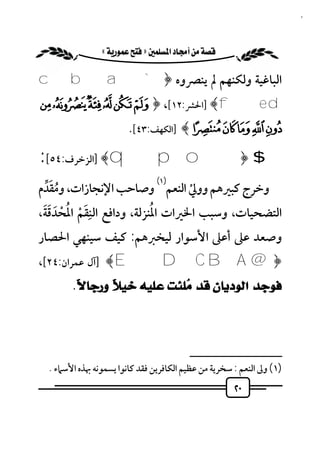 قصة من أمجاد المسلمين « فتح عمورية »
الباغية ولكنهم لم ينصروه ﴿ ` c b a
f ed﴾ [الحشر:١٢]، ﴿ وَلَمْ تَكُن لَّهُۥ فِئَةٌ يَنصُرُونَهُۥ مِن
دُونِ ٱللَّهِ وَمَا كَانَ مُنتَصِرًا ﴾ [الكهف:٤٣].
﴿ $ q p o﴾ [الزخرف:٥٤]:
وخرج كبيرهم ووليّ النعم(١) وصاحب الإنجازات، ومُقَدِّم
التضحيات، وسبب الخيرات المُنزلة، ودافع النِقَمِ المُحْدَقَةَ،
وصعد على أعلى الأسوار ليخبرهم: كيف سينهي الحصار
﴿ E D CB A@﴾ [آل عمران:٢٤]،
فوجد الوديان قد مُلئت عليه خيلاً ورجالاً.
(١) ولى النعم : سخرية من عظيم الكافرين فقد كانوا يسمونه بهذه الأسماء .
٢٠